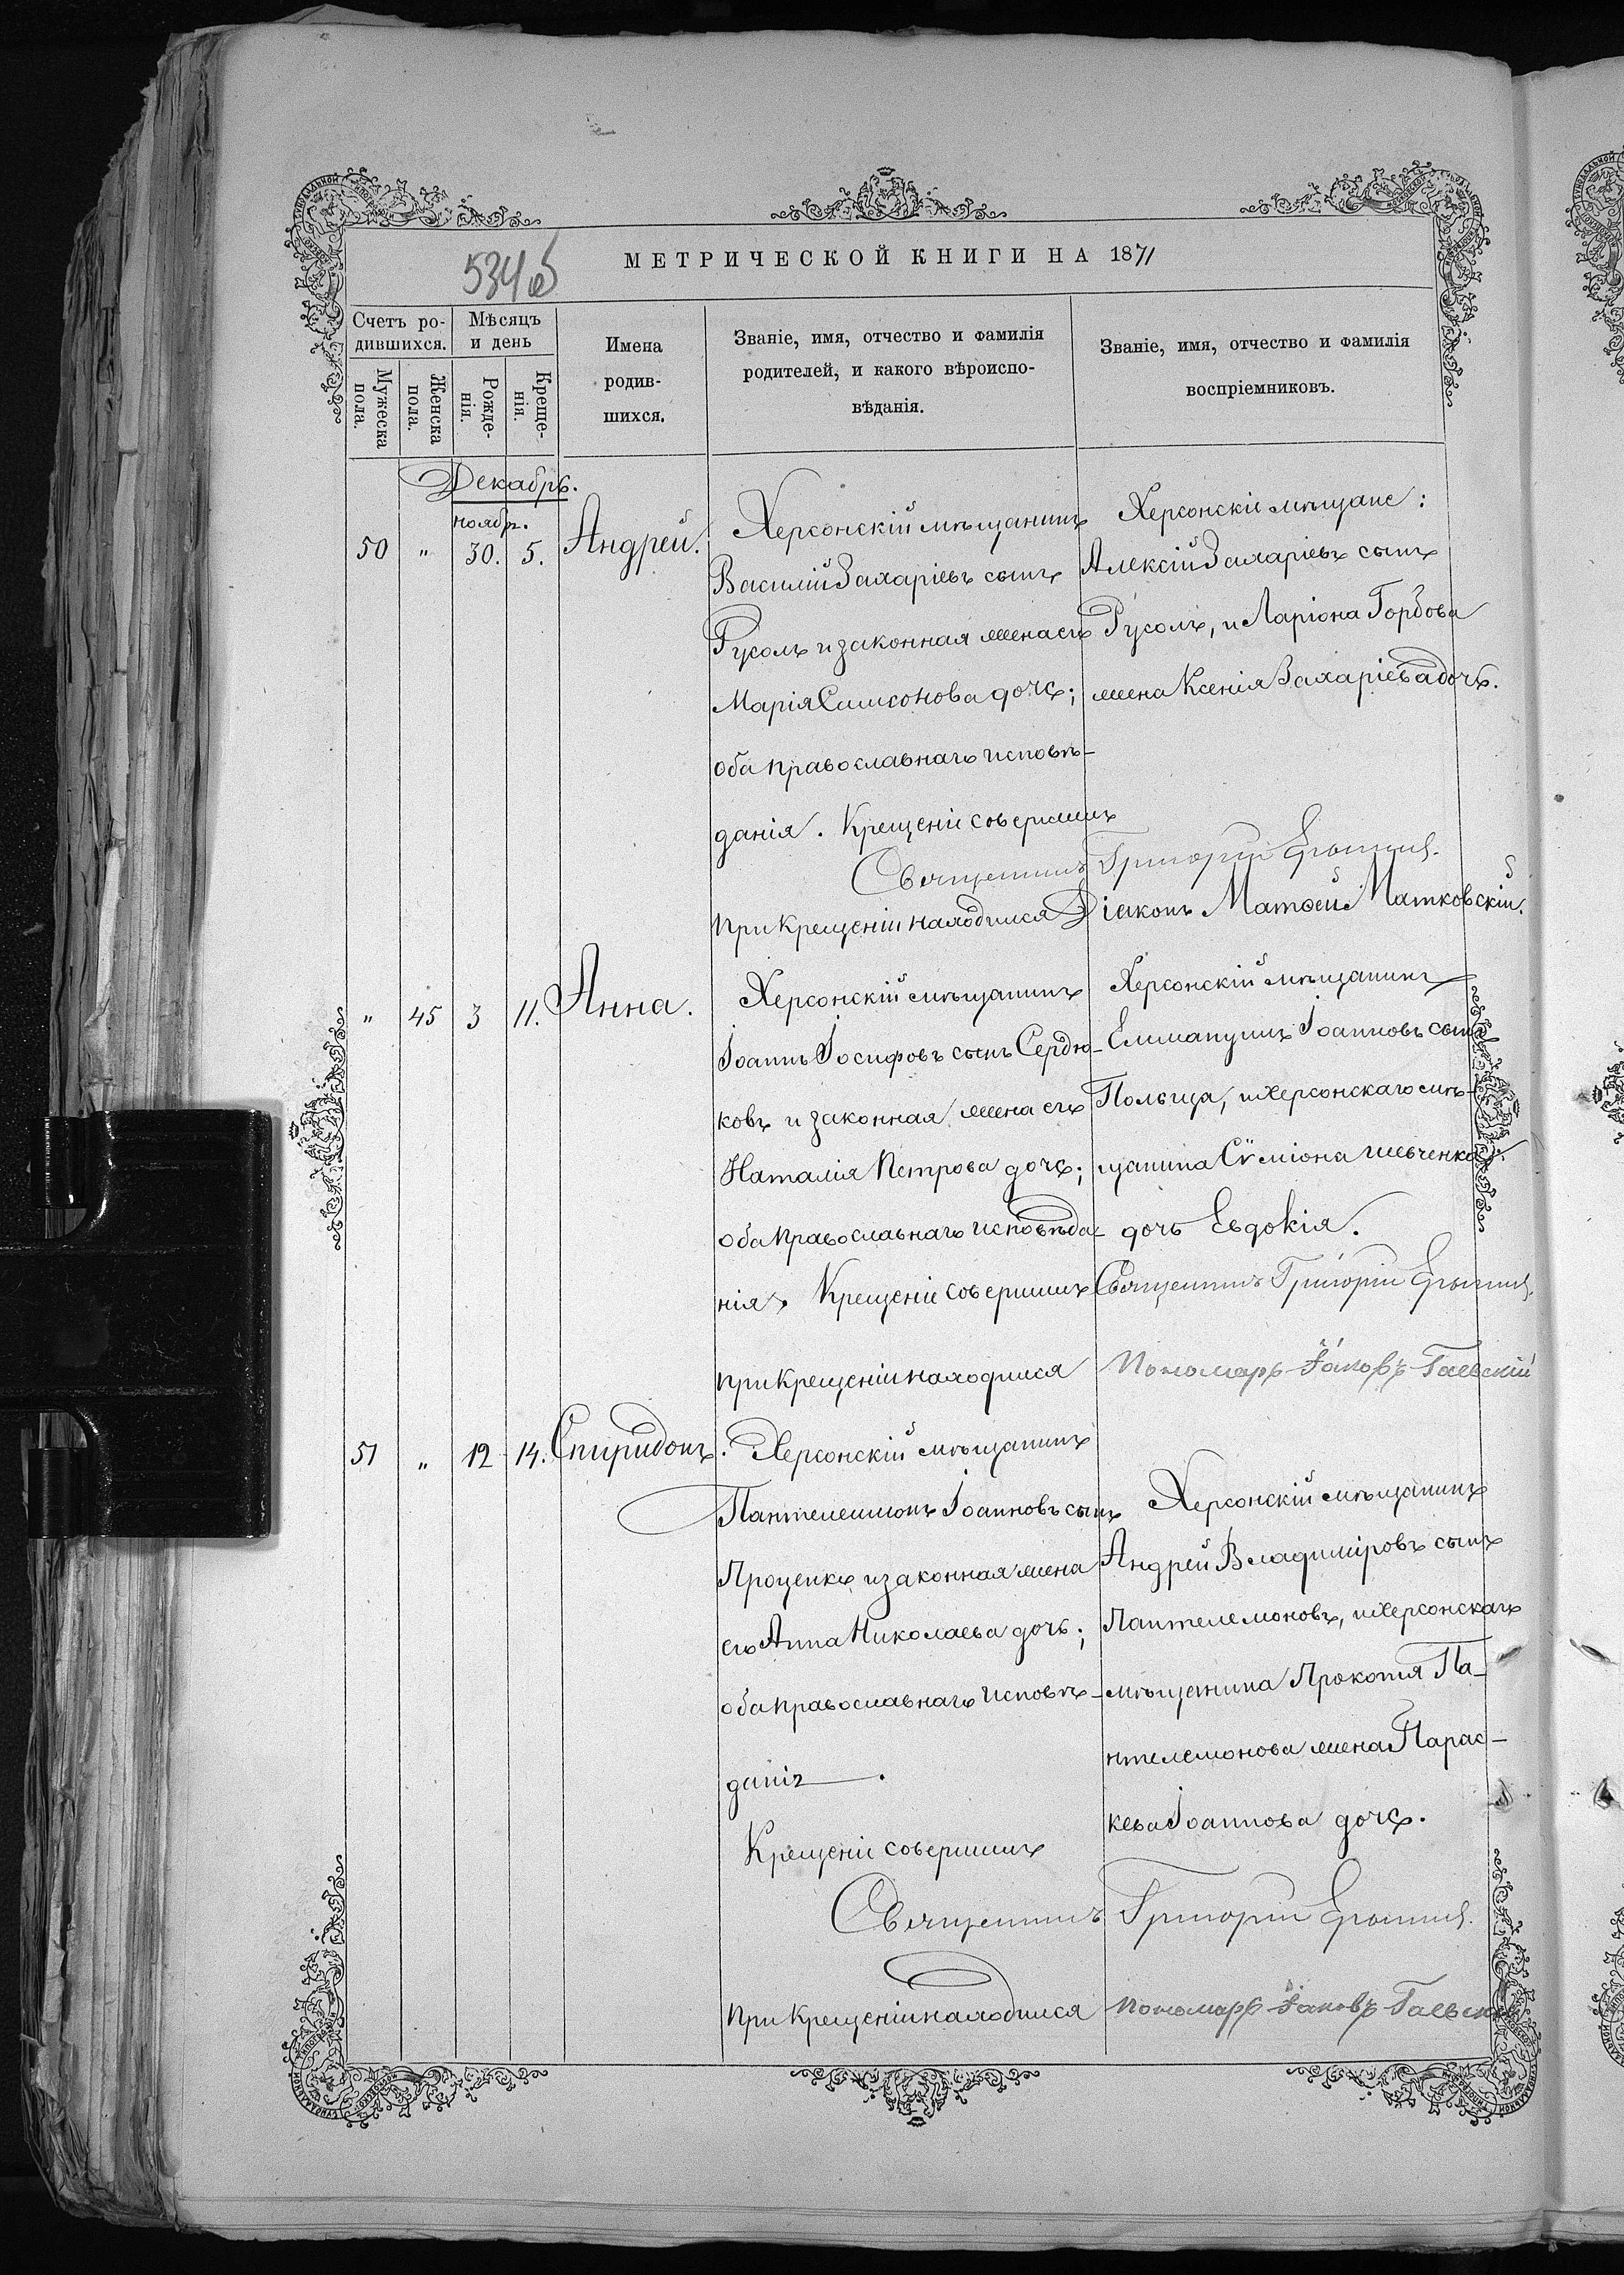 МЕТРИЧЕСКОЙ КНИГИ НА 1871
534 об
Счетъ ро-
дившихся.
Мужеска
пола.
Женска
пола.
Мѣсяцъ
и день
Рожде-
нія.
Креще-
нія.
Имена
родив-
шихся.
Званіе, имя, отчество и фамилія
родителей, и какого вѣроиспо-
вѣданія.
Званіе, имя, отчество и фамилія
воспріемниковъ.
Декабрь.
ноябр.
50 " 30. 5. Андрей.
Херсонскій мѣщанинъ
Василій Захаріевъ сынъ
Русолъ и законная жена его
Марія Самсонова дочь;
оба православнаго исповѣ-
данія. Крещеніе совершилъ
Херсонскіе мѣщане:
Алексій Захаріевъ сынъ
Русолъ, и Ларіона Горбова
жена Ксенія Захаріева дочь.
Священникъ Григорій
При крещеніи находился Діаконъ Матѳей Матковскій.
" 45 3 11. Анна.
Херсонскій мѣщанинъ
Іоаннъ Іосифовъ сынъ Сердю-
ковъ и законная жена его
Наталія Петрова дочь;
оба православнаго исповѣда-
нія. Крещеніе совершилъ
Херсонскій мѣщанинъ
Еммануилъ Іоанновъ сынъ
Польща, и херсонскаго мѣ-
щанина Сѵміона Шевченко
дочь Евдокія.
Священникъ Григорій
при крещеніи находился Пономарь Іаковъ Гаевскій
51 " 12 14. Спиридонъ.
Херсонскій мѣщанинъ
Пантелеимонъ Іоанновъ сынъ
Проценко и законная жена
его Анна Николаева дочь;
оба православнаго исповѣ-
данія.
Крещеніе совершилъ
Херсонскій мѣщанинъ
Андрей Владиміровъ сынъ
Пантелемоновъ, и херсонскаго
мѣщанина Прокопія Па-
нтелемонова жена Парас-
кева Іоаннова дочь.
Священникъ Григорій
при крещеніи находился Пономарь Іаковъ Гаевскій